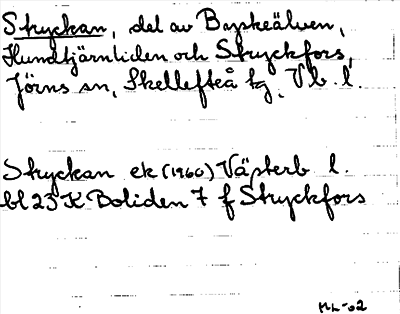 Stryckan, del av Byskeälven,
Hundtjärnliden och Stryckfors,
Jörns sn, Skellefteå tg, Vb. l.
Stryckan ek (1960) Västerb l.
bl 23 K Boliden 7 f Stryckfors
ML-02